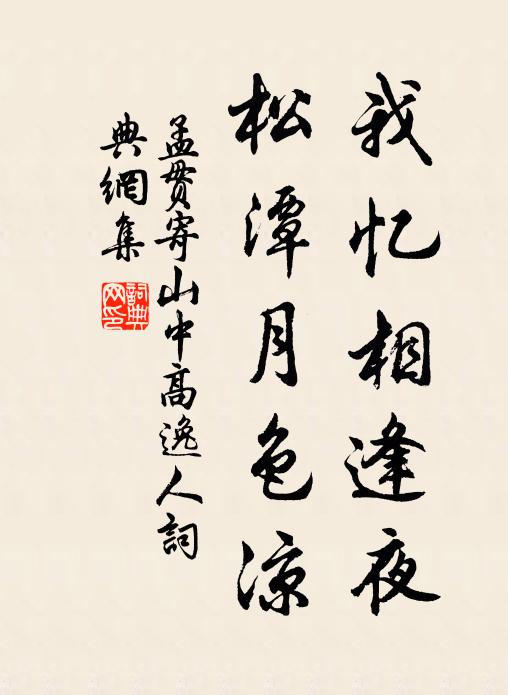 我忆相逢夜
松潭月色凉
孟贯寄山中高逸人词
典網集
詞典
网印